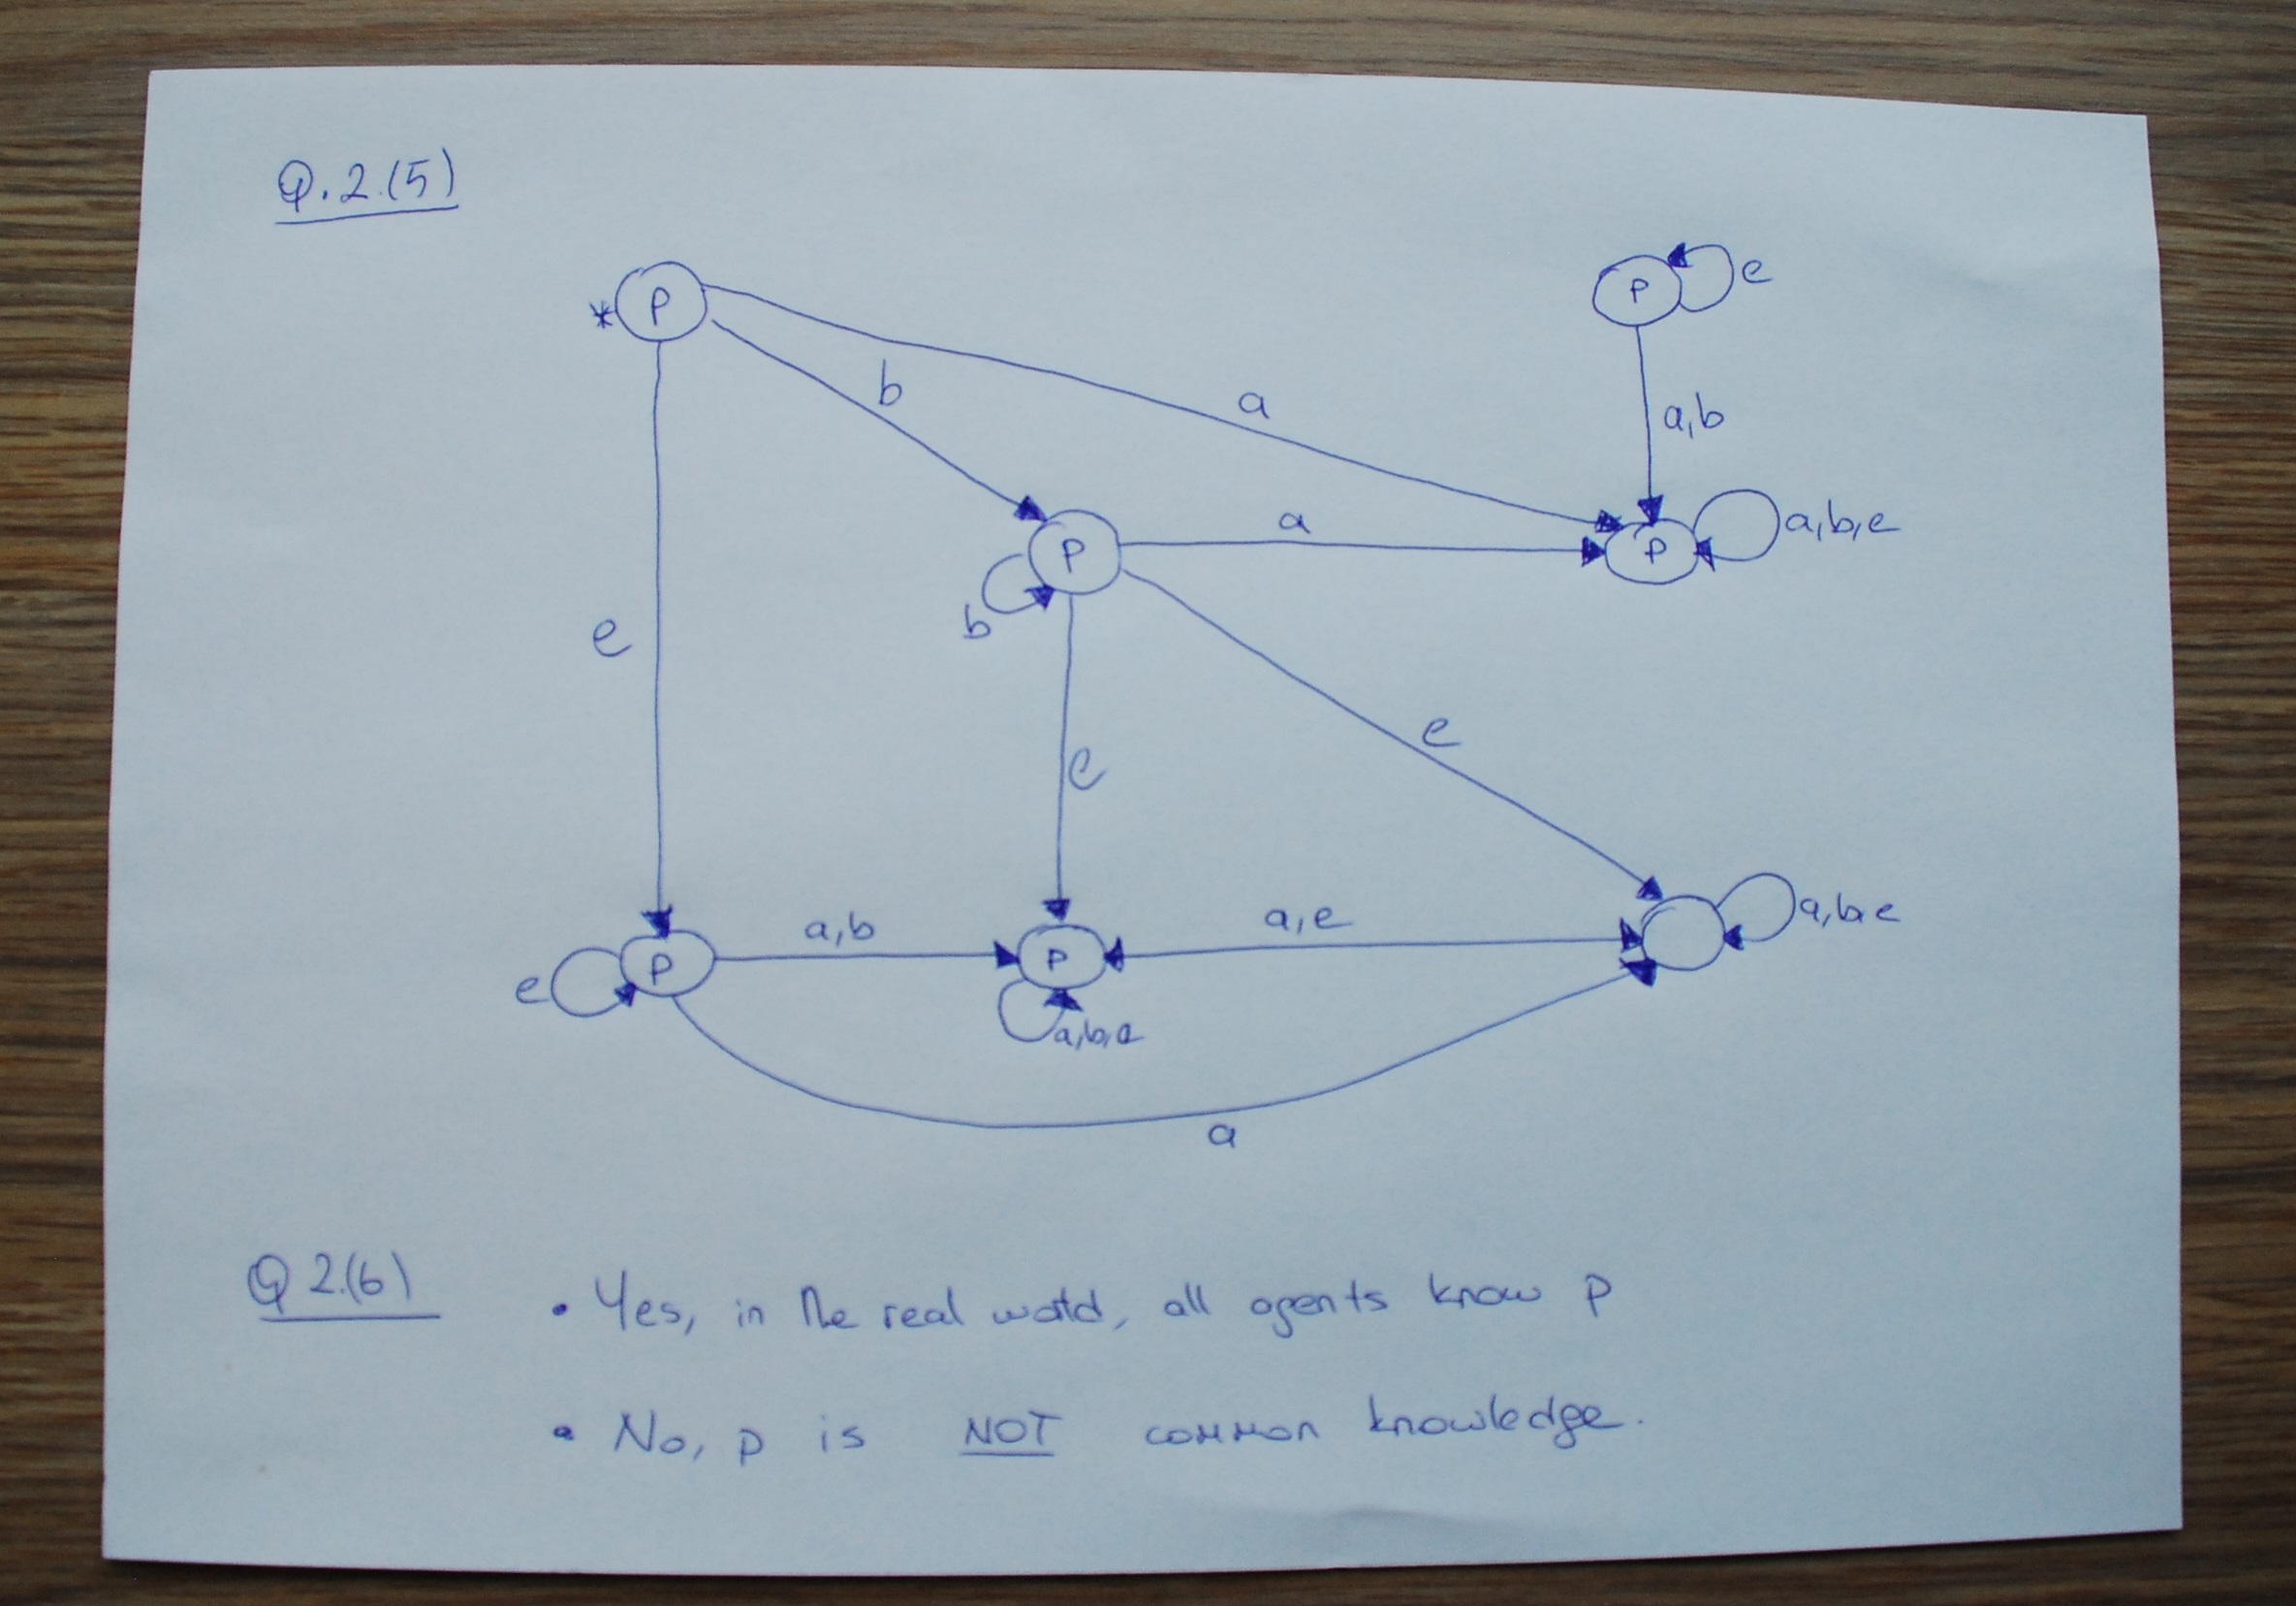 Q.2.(5)
* p
p e
b
a
a,b
p
a
p
a,b,e
b
e
e
e
e
p
a,b
p
a,e
a,b,e
a,b,e
a
Q 2.(6)
• Yes, in the real world, all agents know p
• No, p is NOT common knowledge.